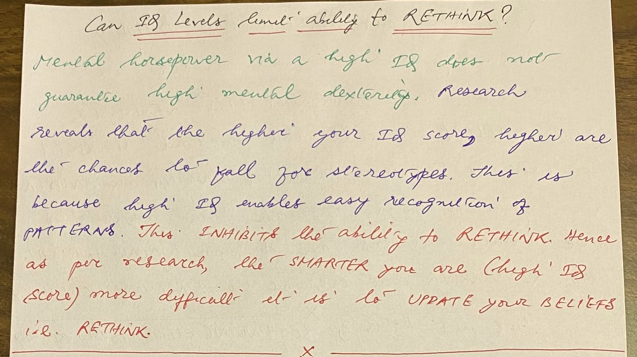 Can IQ Levels limit ability to RETHINK?
Mental horsepower via a high IQ does not
guarantee high mental dexterity. Research
reveals that the higher your IQ score, higher are
the chances to fall for stereotypes. This is
because high IQ enables easy recognition of
PATTERNS. This INHIBITS the ability to RETHINK. Hence
as per research, the SMARTER you are (high IQ
score) more difficult it is to UPDATE your BELIEFS
i.e. RETHINK.
x